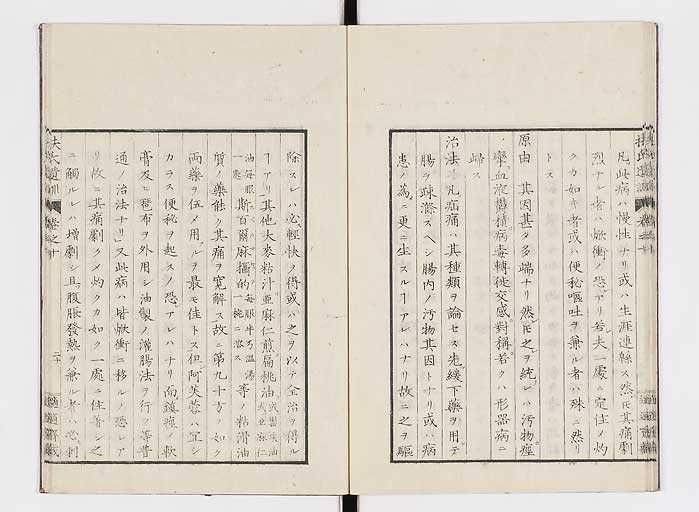 凡此病ハ慢性ナリ或ハ生涯連緜ス然𪜈其痛劇
烈ナル者ハ焮衝ノ恐アリ若夫一處ニ定住〆灼
クカ如キ者或ハ便秘嘔吐ヲ兼ル者ハ殊ニ然リ
トス
原由 其因甚タ多端ナリ然𪜈之ヲ統レハ汚物痙
攣血液鬱積病毒轉徙交感對稱若クハ形器病ニ
歸ス
治法 凡疝痛ハ其種類ヲ論セス先緩下藥ヲ用テ
腸ヲ疎滌スヘシ腸內ノ汚物其因トナリ或ハ病
患ノ為ニ更ニ生スルヿアレハナリ故ニ之ヲ驅
除スレハ必輕快ヲ得或ハ之ヲ以テ全治ヲ得ル
ヿアリ其他大麥粘汁亞麻仁煎扁桃油或罌粟油或亞麻仁
油每服一匕斯百爾麻攝的一椀ニ溶ス每服半匁溫湯等ノ粘滑油
質ノ藥能ク其痛ヲ寬解ス故ニ第九十方ノ如ク
兩藥ヲ伍メ用フルヲ最モ佳トス但阿芙蓉ハ宜シ
カラス便秘ヲ起スノ恐アレハナリ而鎭痙ノ軟
膏及ニ菴布ヲ外用シ油製ノ灌腸法ヲ行フ等普
通ノ治法ナリ又此病ハ皆焮衝ニ移ルノ恐レア
リ故ニ其痛劇クメ灼クカ如ク一處ニ住着シ之
ニ觸ルレハ增劇シ且腹脹發熱ヲ兼ル者ハ必刺
扶氏遺訓 卷之十
二十